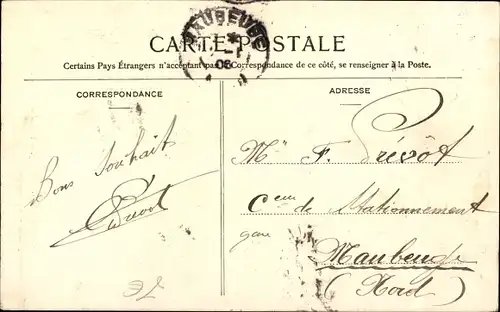 MAUBEUGE
*
08
CARTE POSTALE
Certains Pays Étrangers n'acceptant pas la Correspondance de ce côté, se renseigner à la Poste.
CORRESPONDANCE
Bons Souhait
Prévot
ADRESSE
Mr F. Prévôt
de Stationnement
gare
Maubeuge
(Nord)